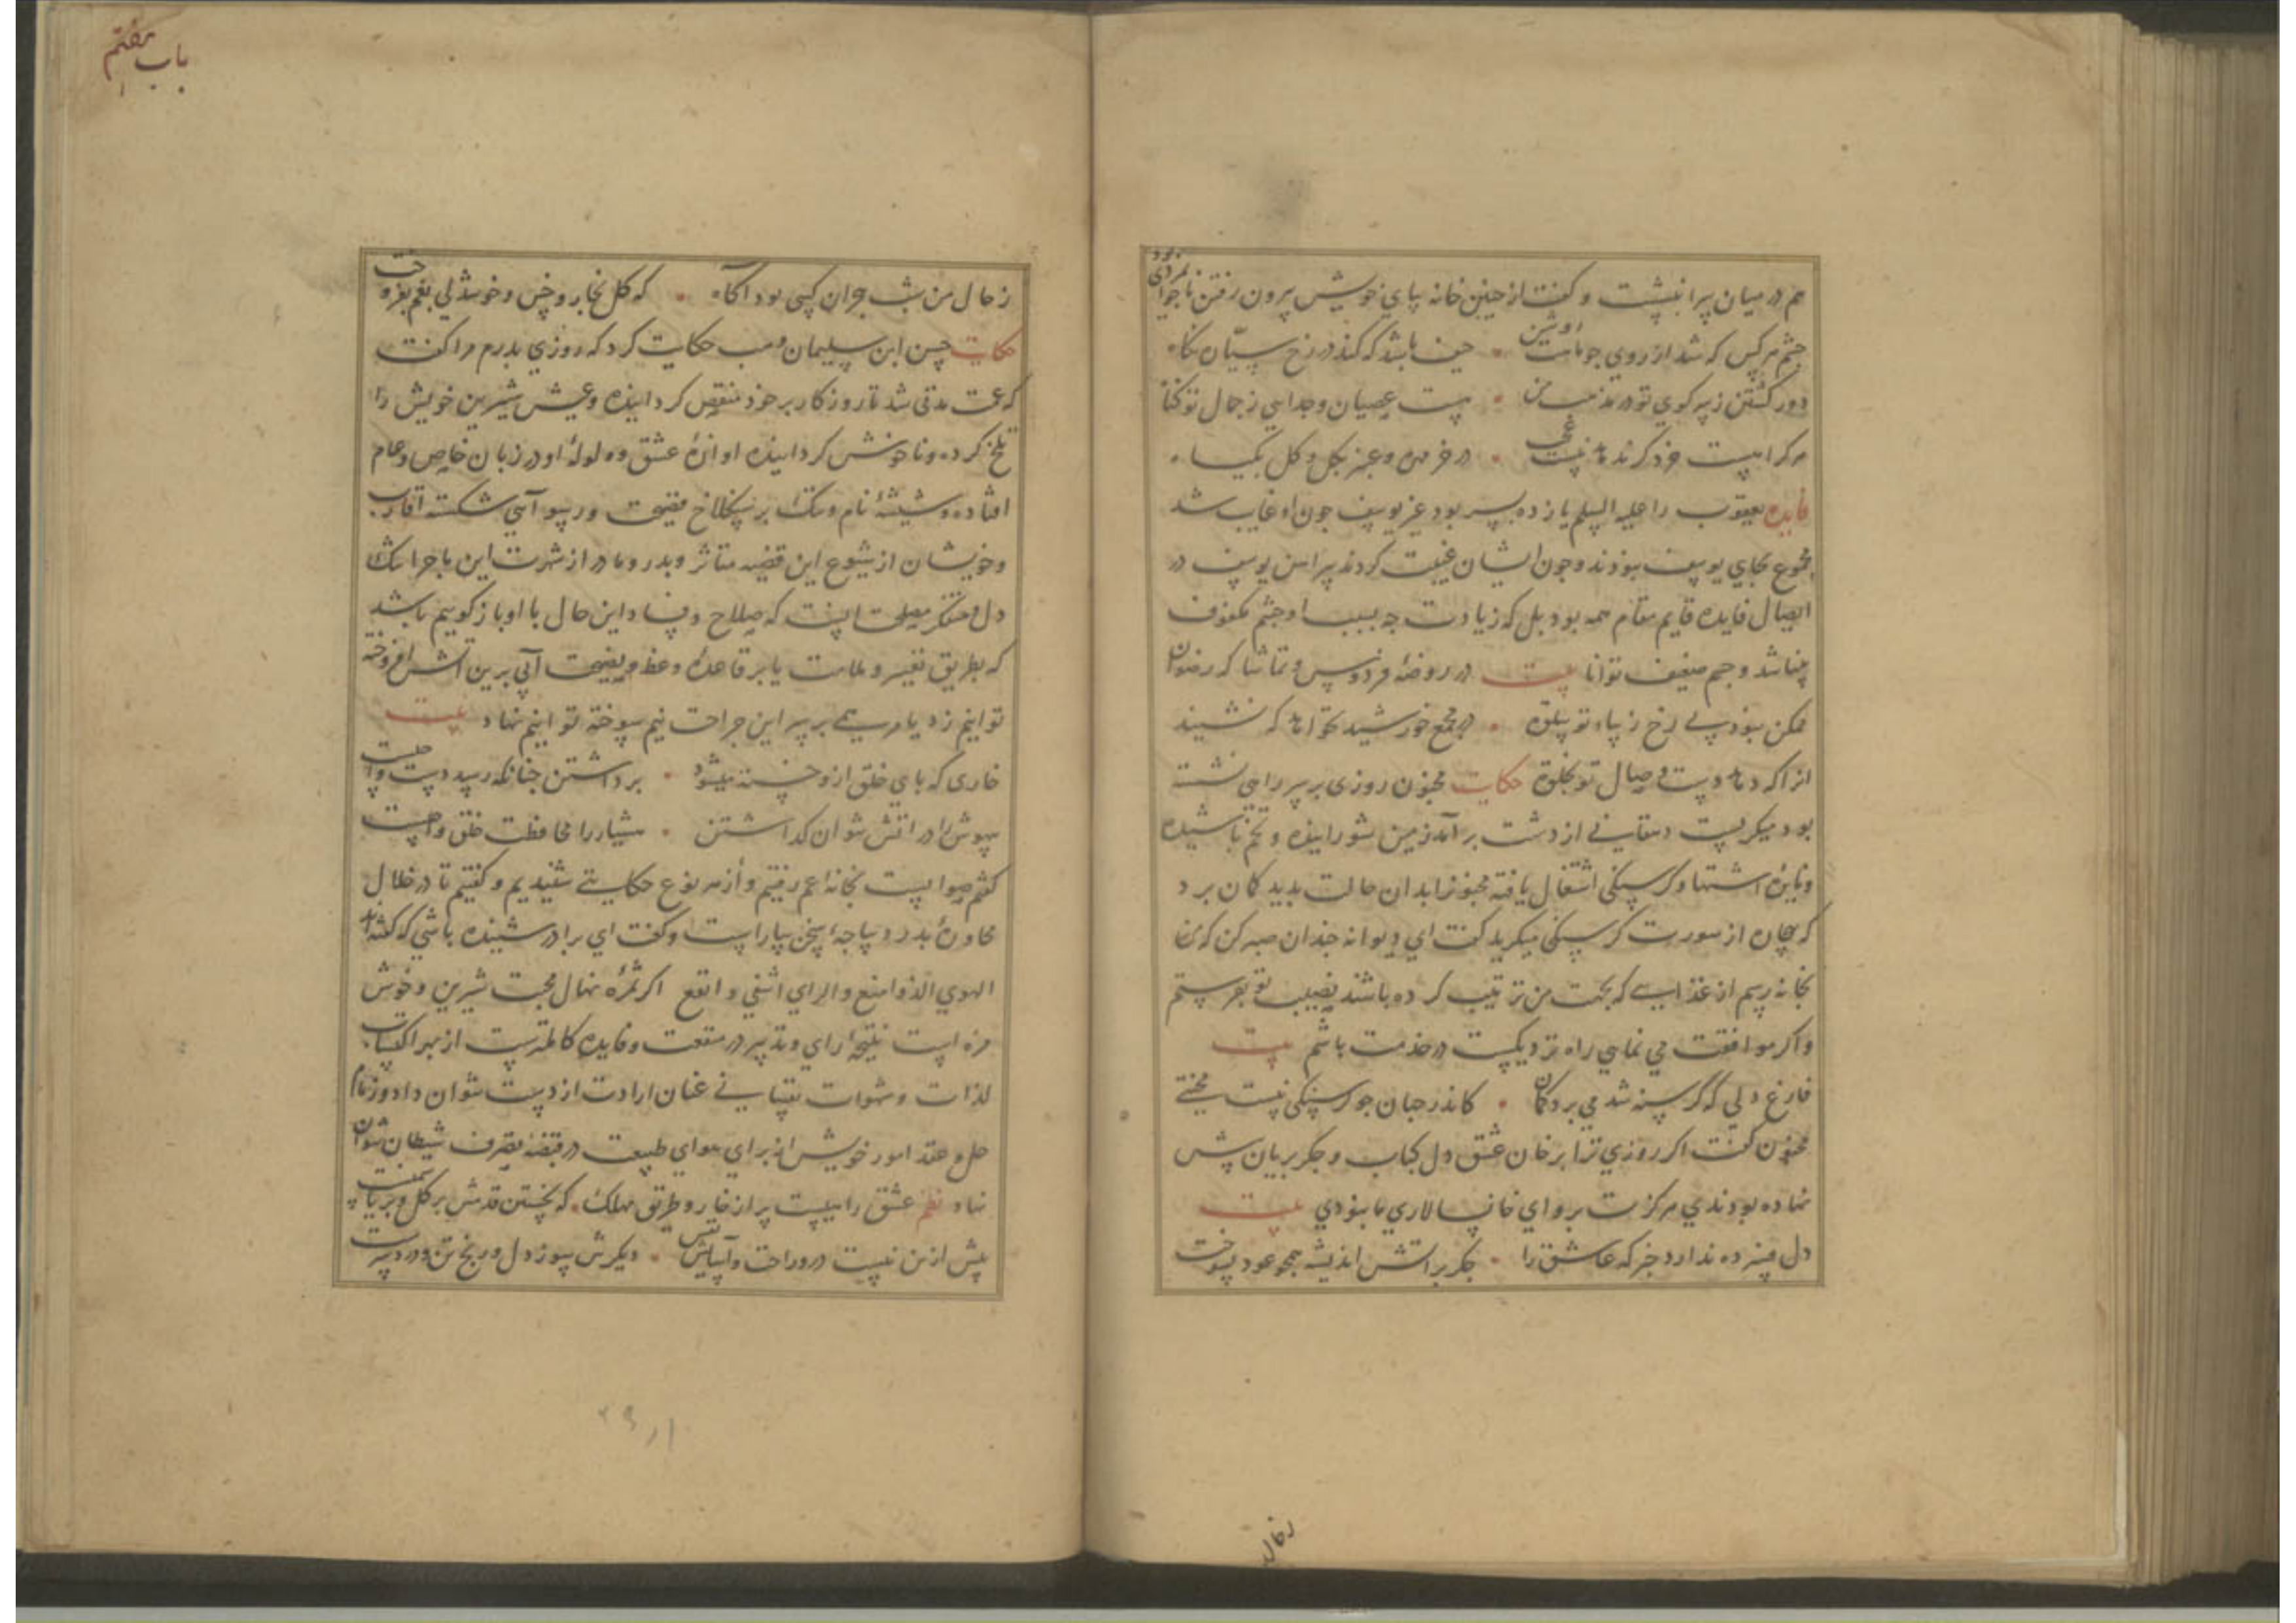 هم در میان سرا بنشست و گفت از چنین خانه بپای خویش برون رفتن ناجوانمردی بود
چشم هر کس که شد از روی جو ماهت روشن حیف باشد که کند در رخ بستان نگاه
دور گشتن ز سر کوی تو در مذهب من هست عصیان وجدایی ز جمال تو گناه
هر کرا هست خرد کر نه ماند نیست در خرمن وعجز بکل وکل بکیاه
فایده یعقوب را علیه السلم یازده پسر بود غیر یوسف چون او غایب شد
مجموع بجای یوسف نبودند و چون ایشان غیبت کردند پیراهن یوسف در
ایصال فایده قایم مقام همه بود بل که زیادت چه بسبب او چشم مکفوف
بینا شد و جسم ضعیف توانا بیت در روضه فردوس و تماشا که رضوان
ممکن نبود بی رخ زیباء تو سلوة در مجمع خورشید کجا که نشیند
انرا که دهد دست وصال تو بخلوة حکایت مجنون روزی بر سر راهی نشسته
بود میکریست دهقانی از دشت بر آمد زمین شورانیده و تخم پاشیده
و نایره اشتها و کرسنکی اشتعال یافته مجنونرا بدان حالت بدید کمان برد
که بیچاره از سورت کرسنکی میکرید کفت ای دیوانه چندان صبر کن که من
بخانه رسم از غذایی که بجهت من ترتیب کرده باشند نصیب تو بفرستم
و اکر موافقت می نمایی راه نزدیکست در خدمت باشم بیت
فارغ دلی که گرسنه شد می برد کمان کاندر جهان جو کرسنکی نیست محنتی
مجنون کفت اکر روزی ترا بر خان عشق دل کباب و جکر بریان پیش
نهاده بودندی هرکزت پروای خانسالاری ما نبودی بیت
دل فسرده ندارد خبر که عاشق را جکر بر اتش اندیشه همچو عود بسوخت
ز حال
باب هفتم
ز حال من شب هجران کسی بود اکاه که کل بخار و خس و خوشدلی بغم بفروخت
حکایت حسن ابن سلیمان وهب حکایت کرد که روزی پدرم مرا کفت
که عمت مدتی شد تا روزکار بر خود منغص کردانیده و عیش شیرین خویش را
تلخ کرده و ناخوش کردانیده اوازهٔ عشق و ولولهٔ او در زبان خاص و عام
افتاده و شیشهٔ نام و ننک بر سنکلاخ فضیحت و رسوایی شکسته اقارب
و خویشان از شیوع این قضیه متاثر و پدر و مادر از شهرت این ماجرا تنک
دل و متفکر مصلحت انست که صلاح و فساد این حال با او باز کوییم باشد
که بطریق تعییر و ملامت یا بر قاعدهٔ وعظ و نصیحت آبی برین اتش افروخته
توانیم زد یا مرهمی بر سر این جراحت نیم سوخته توانیم نهاد بیت
خاری که پای خلق ازو خسته میشود برداشتن چنانکه رسد دست واجبست
بیهوش را در اتش نتوان کذاشتن هشیار را محافظت خلق واجبست
کفتم صوابست بخانه عم رفتیم و از هر نوع حکایتی شنیدیم و کفتیم تا در خلال
محاورهٔ پدر دیباجه سخن بیاراست و کفت ای برادر شنیده باشی که کفته اند
الهوی الذ و امتع والرای اشفی و انفع اکر ثمرهٔ نهال محبت شیرین و خوش
مزه است نتیجهٔ رای و تدبیر در منفعت و فایده کاملترست از بهر اکتساب
لذات و شهوات نفسانی عنان ارادت از دست نتوان داد و زمام
حل و عقد امور خویش از برای هوای طبیعت در قبضهٔ تصرف شیطان نتوان
نهاد نظم عشق راهیست پر از خار و طرق مهلک که نخستین قدمش بر کل و
پیش ازین نیست درو راحت و آسایش نفس دیکرش سوز دل و رنج تن و درد سرست